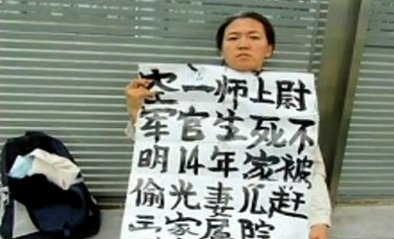 空一师上尉
军官生死不
明14年家被
偷光妻儿赶
家属院